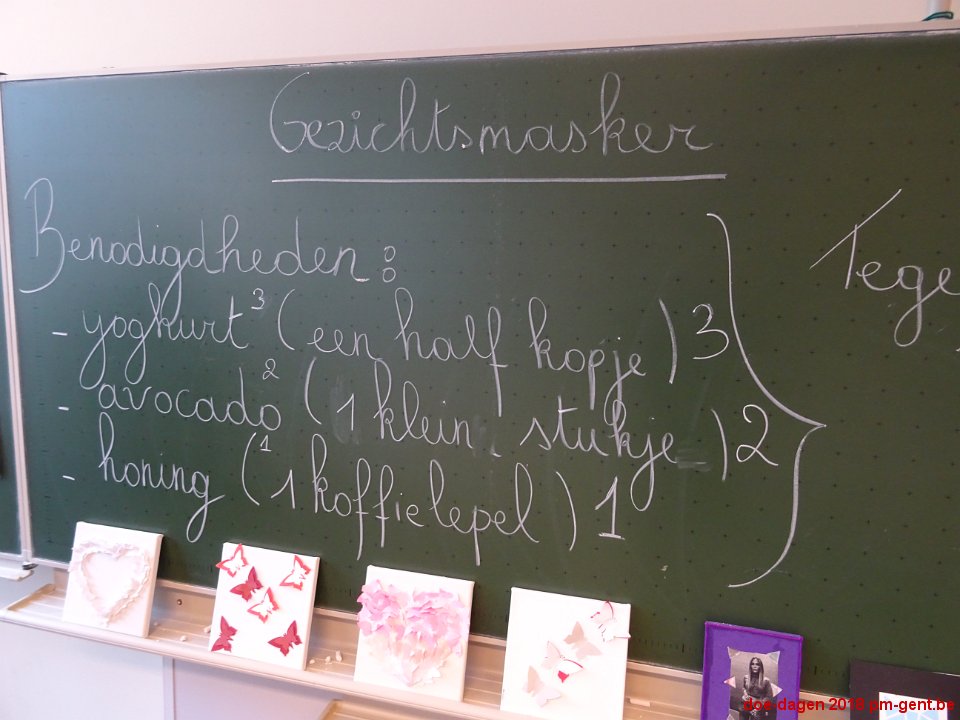 Gezichtsmasker
Benodigdheden:
- yoghurt ³ (een half kopje) 3
- avocado ² (1 klein stukje) 2
- honing ¹ (1 koffielepel) 1
Tege
doe-dagen 2018 pm-gent.be